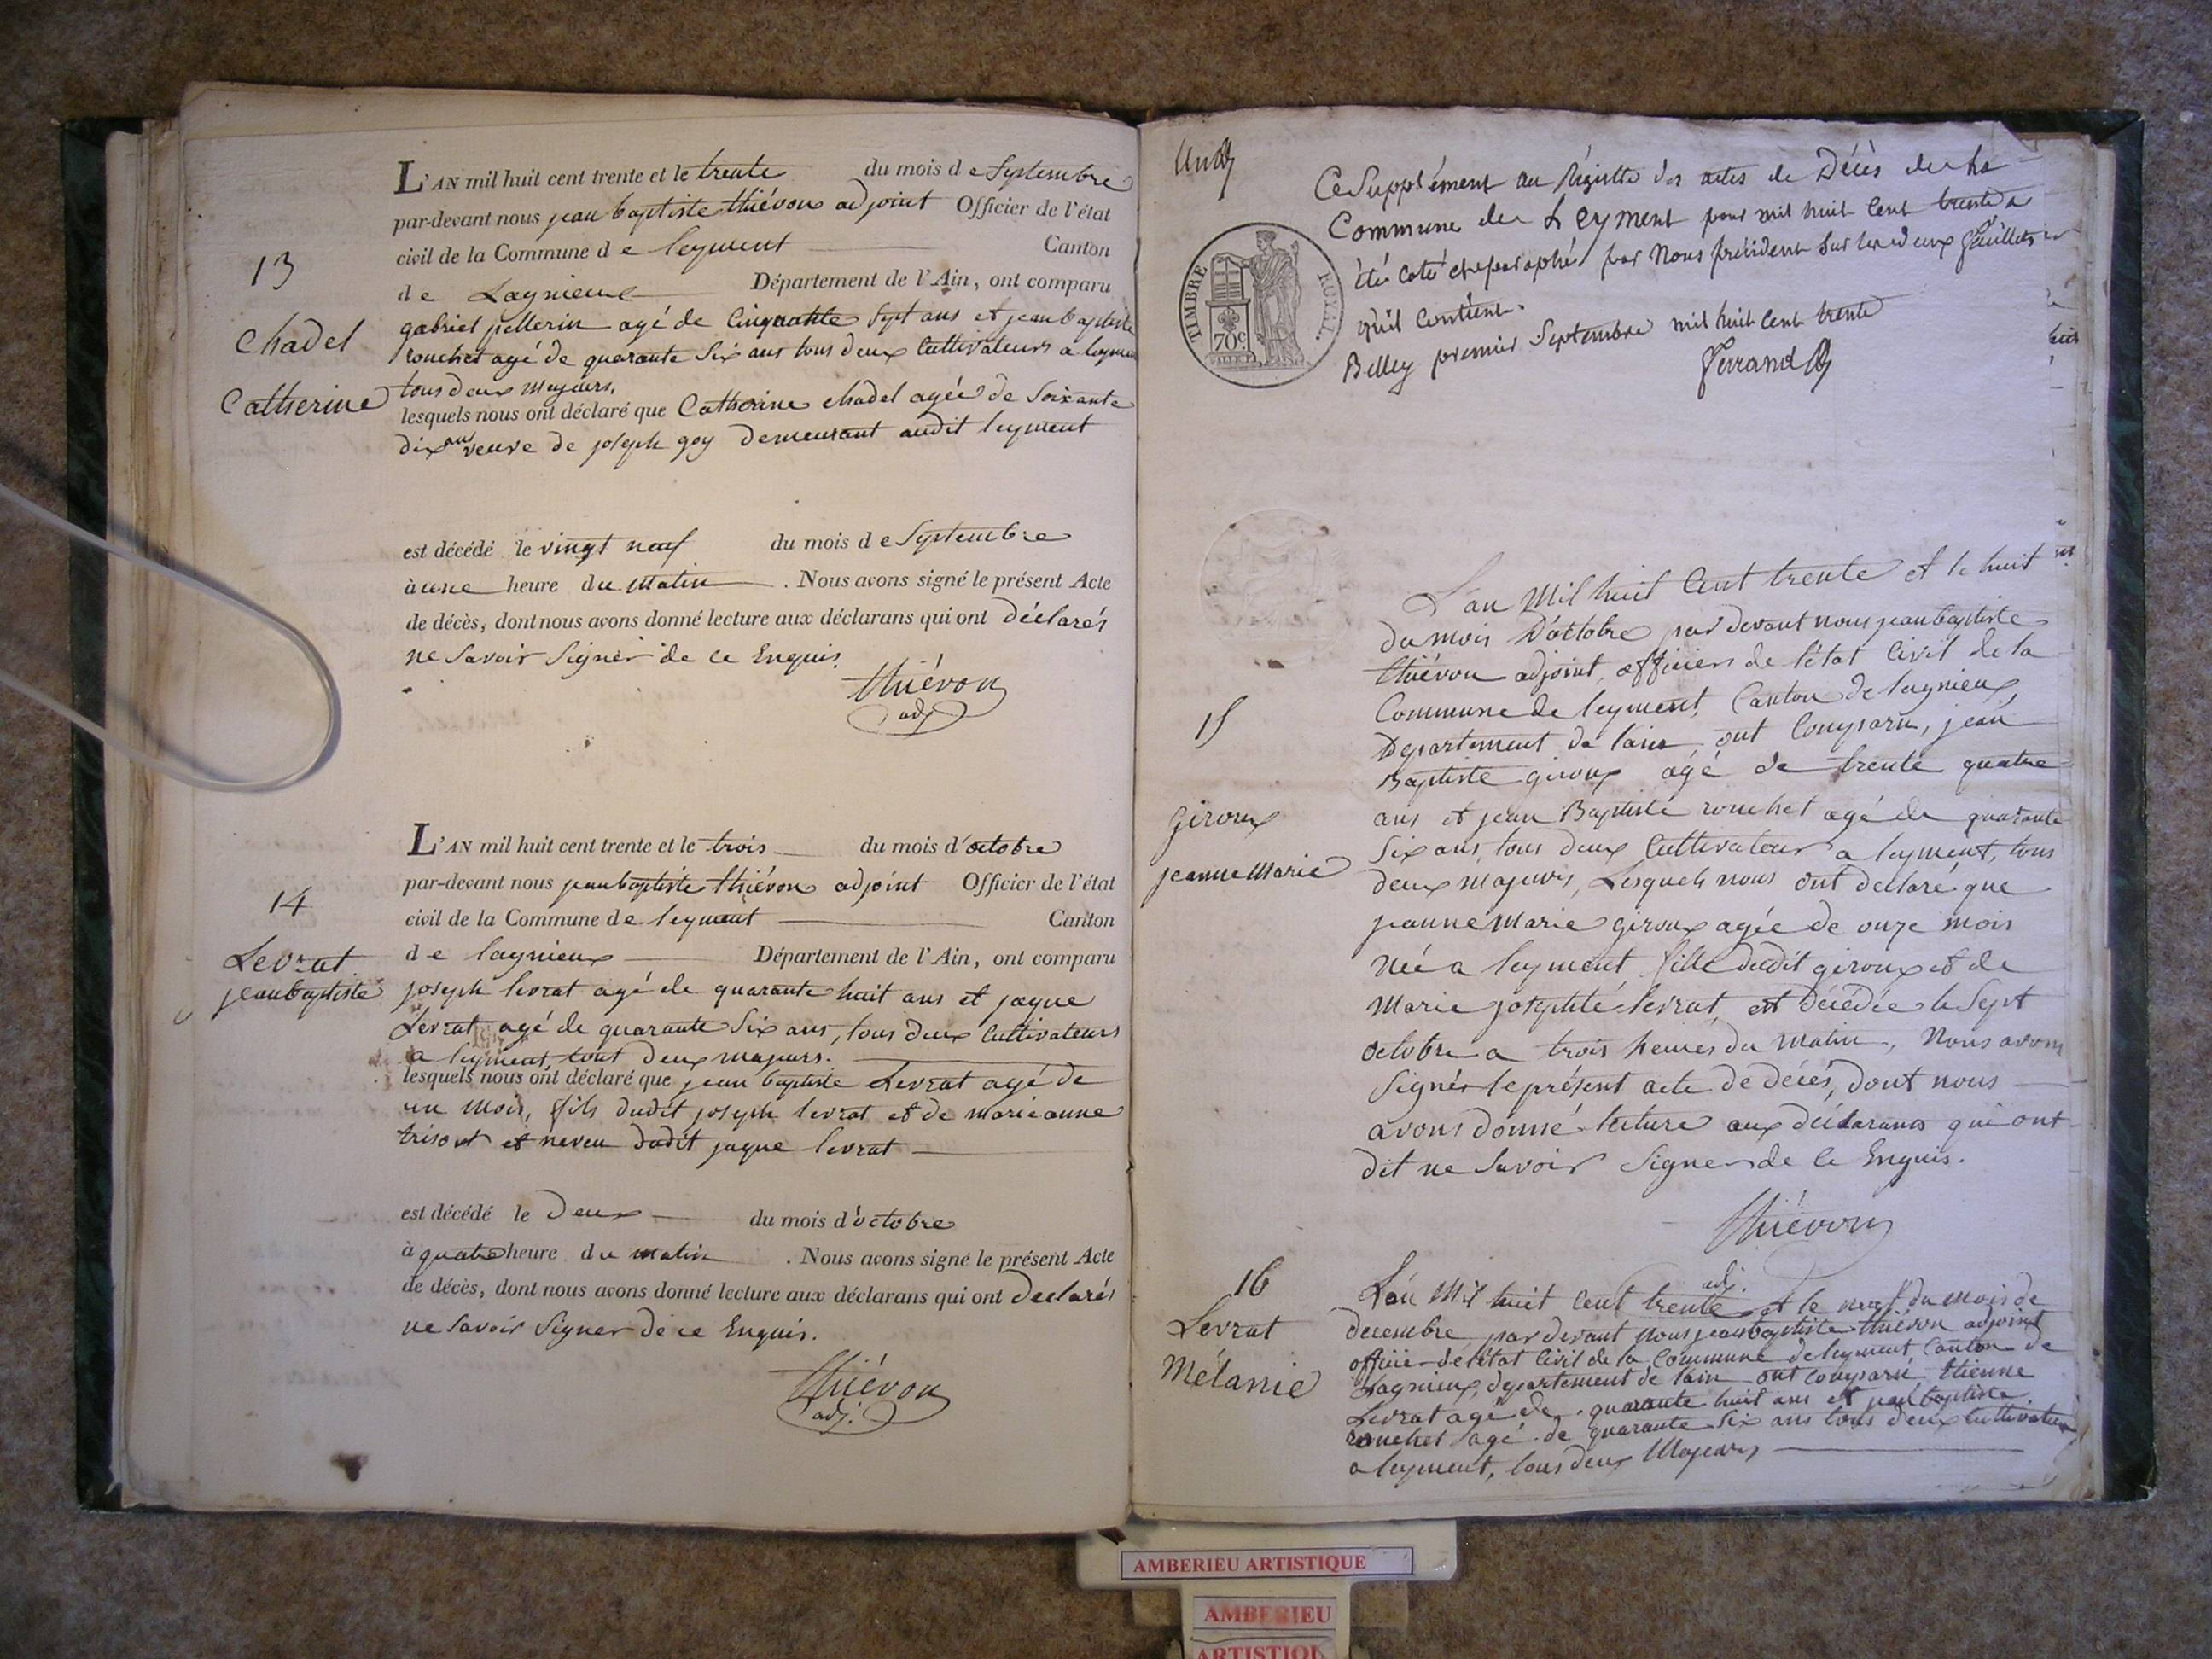 13
Chadel
Catherine
L'AN mil huit cent trente et le trente du mois de Septembre
par-devant nous jean baptiste thiévon adjoint Officier de l'état
civil de la Commune de leyment Canton
de Lagnieux Département de l'Ain, ont comparu
gabriel pellerin agé de Cinquante Sept ans et jean baptiste
rouchet agé de quarante Six ans tous deux Cultivateurs a leyment
tous deux majeurs.
lesquels nous ont déclaré que Catherine chadel agée de Soixante
dix ans veuve de joseph goy Demeurant audit leyment
est décédé le vingt neuf du mois de Septembre
à une heure du matin . Nous avons signé le présent Acte
de décès, dont nous avons donné lecture aux déclarans qui ont déclarés
ne Savoir Signer de ce Enquis.
thiévon
adj
14
Levrat
jean baptiste
L'AN mil huit cent trente et le trois du mois d'octobre
par-devant nous jean baptiste thiévon adjoint Officier de l'état
civil de la Commune de leyment Canton
de lagnieux Département de l'Ain, ont comparu
joseph levrat agé de quarante huit ans et jaque
Levrat agé de quarante Six ans, tous deux Cultivateurs
a leyment, tout deux majeurs.
lesquels nous ont déclaré que jean baptiste Levrat agé de
un mois, fils dudit joseph levrat et de marie anne
et neveu dudit jaque levrat
est décédé le Deux du mois d'octobre
à quatre heure du matin . Nous avons signé le présent Acte
de décès, dont nous avons donné lecture aux déclarans qui ont déclarés
ne Savoir Signer de ce Enquis.
thiévon
adj.
Un
Ce Supplément au Régistre des actes de Décès de la
Commune de Leyment pour mil huit Cent trente a
été Coté et paraphé par Nous président Sur les deux feuillets
qu'il Contient.
Belley premier Septembre mil huit Cent trente
Ferrand
TIMBRE ROYAL.
70c
15
Giroux
jeanne Marie
L'an Mil huit Cent trente et le huit
du mois D'octobre par devant nous jean baptiste
thiévon adjoint, officier de l'état Civil de la
Commune de leyment, Canton de lagnieux,
Departement de l'ain, ont Comparu, jean
Baptiste giroux agé de trente quatre
ans et jean Baptiste rouchet agé de quarante
Six ans, tous deux Cultivateur a leyment, tous
deux majeurs, Lesquels nous ont déclaré que
jeanne Marie giroux agée de onze mois
née a leyment, fille dudit giroux et de
Marie josephte levrat, est décédée le Sept
octobre a trois heures du matin, Nous avons
Signés le présent acte de décés, dont nous
avons donné lecture aux déclarans qui ont
dit ne Savoir Signer de Ce Enquis.
thiévon
adj.
16
Levrat
Mélanie
L'an Mil huit Cent trente et le neuf du mois de
decembre par devant nous jean baptiste thiévon adjoint
officier de l'état Civil de la Commune de leyment Canton de
Lagnieux, departement de l'ain ont Comparu Etienne
Levrat agé de quarante huit ans et jean baptiste
rouchet agé de quarante Six ans tous deux Cultivateurs
a leyment, tous deux Majeurs
AMBERIEU ARTISTIQUE
AMBERIEU